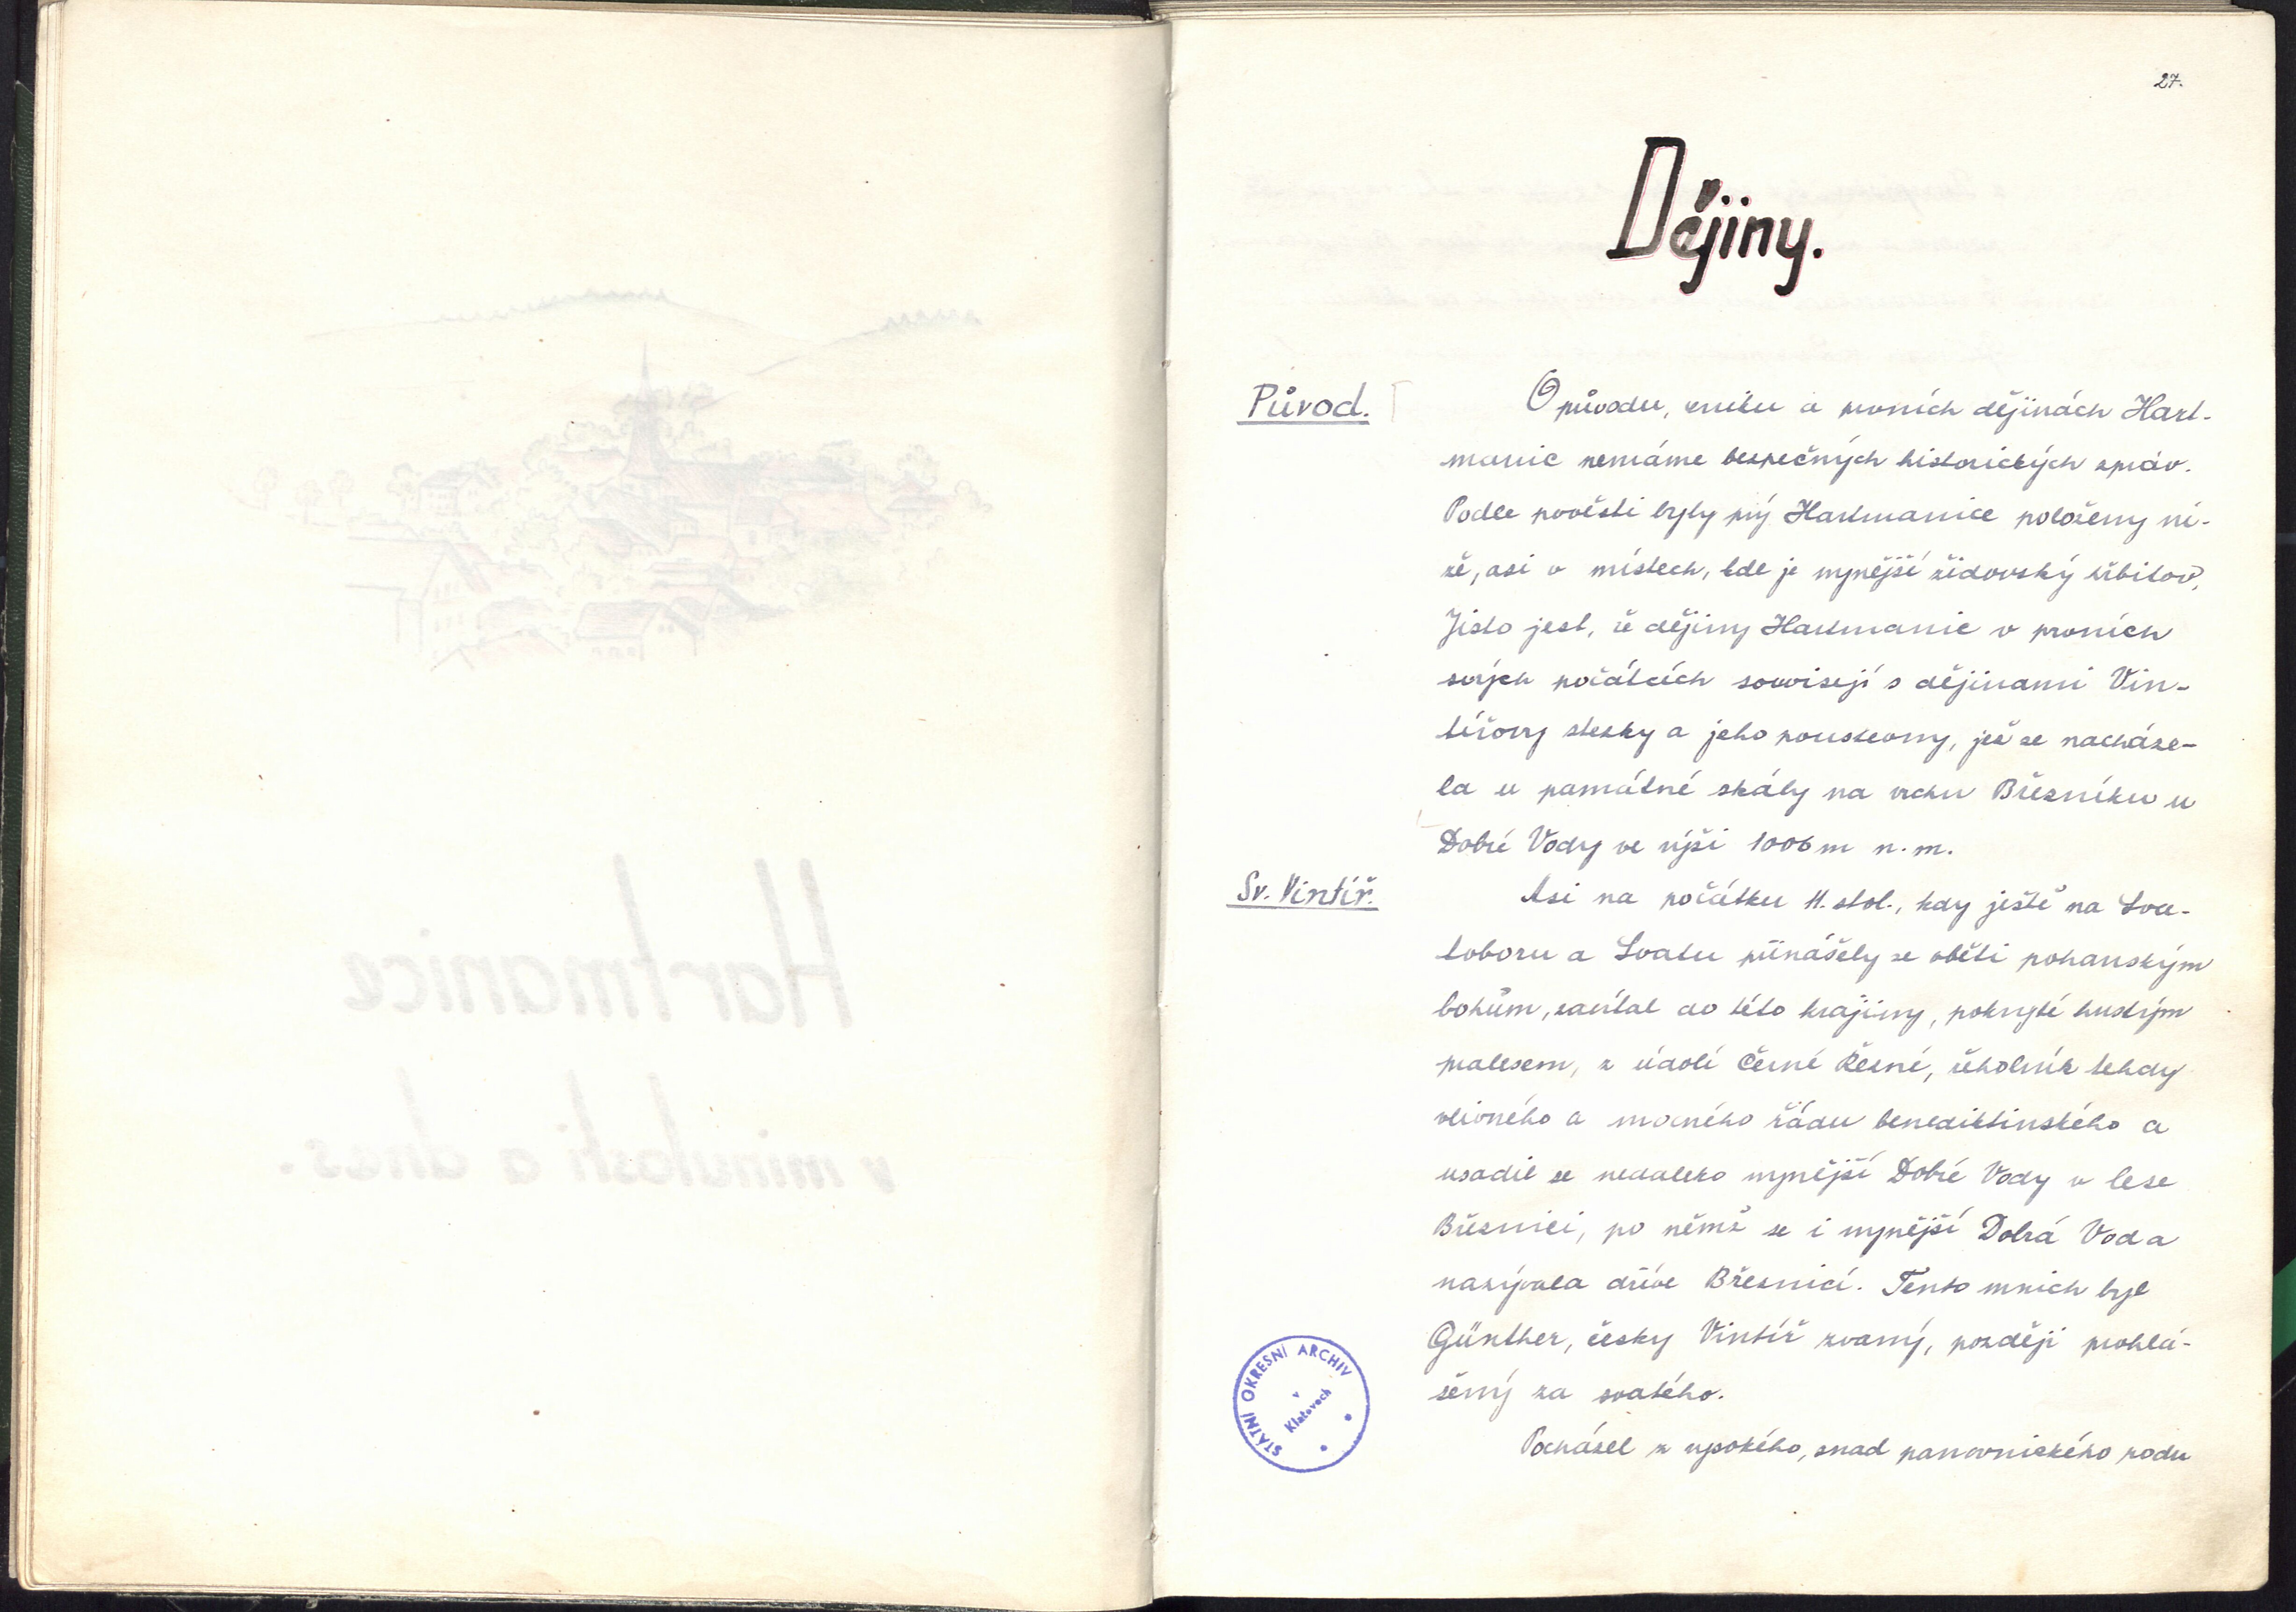 27.
Dějiny.
Původ.
O původu, vzniku a prvních dějinách Hart-
manic nemáme bezpečných historických zpráv.
Podle pověsti byly prý Hartmanice položeny ní-
že, asi v místech, kde je nynější židovský hřbitov,
Jisto jest, že dějiny Hartmanic v prvních
svých počátcích souvisejí s dějinami Vin-
tířovy stezky a jeho poustevny, jež se nacháze-
la u památné skály na vrchu Březníku u
Dobré Vody ve výši 1006 m n. m.
Sv. Vintíř.
Asi na počátku 11. stol., kdy ještě na Sva-
toboru a Svatu přinášely se oběti pohanským
bohům, zavítal do této krajiny, pokryté hustým
pralesem, z údolí Černé Řezné, řeholník tehdy
vlivného a mocného řádu benediktinského a
usadil se nedaleko nynější Dobré Vody v lese
Březnici, po němž se i nynější Dobrá Voda
nazývala dříve Březnicí. Tento mnich byl
Günther, česky Vintíř zvaný, později prohlá-
šený za svatého.
Pocházel z vysokého, snad panovnického rodu
STÁTNÍ OKRESNÍ ARCHIV
v
Klatovech
Hartmanice
v minulosti a dnes.